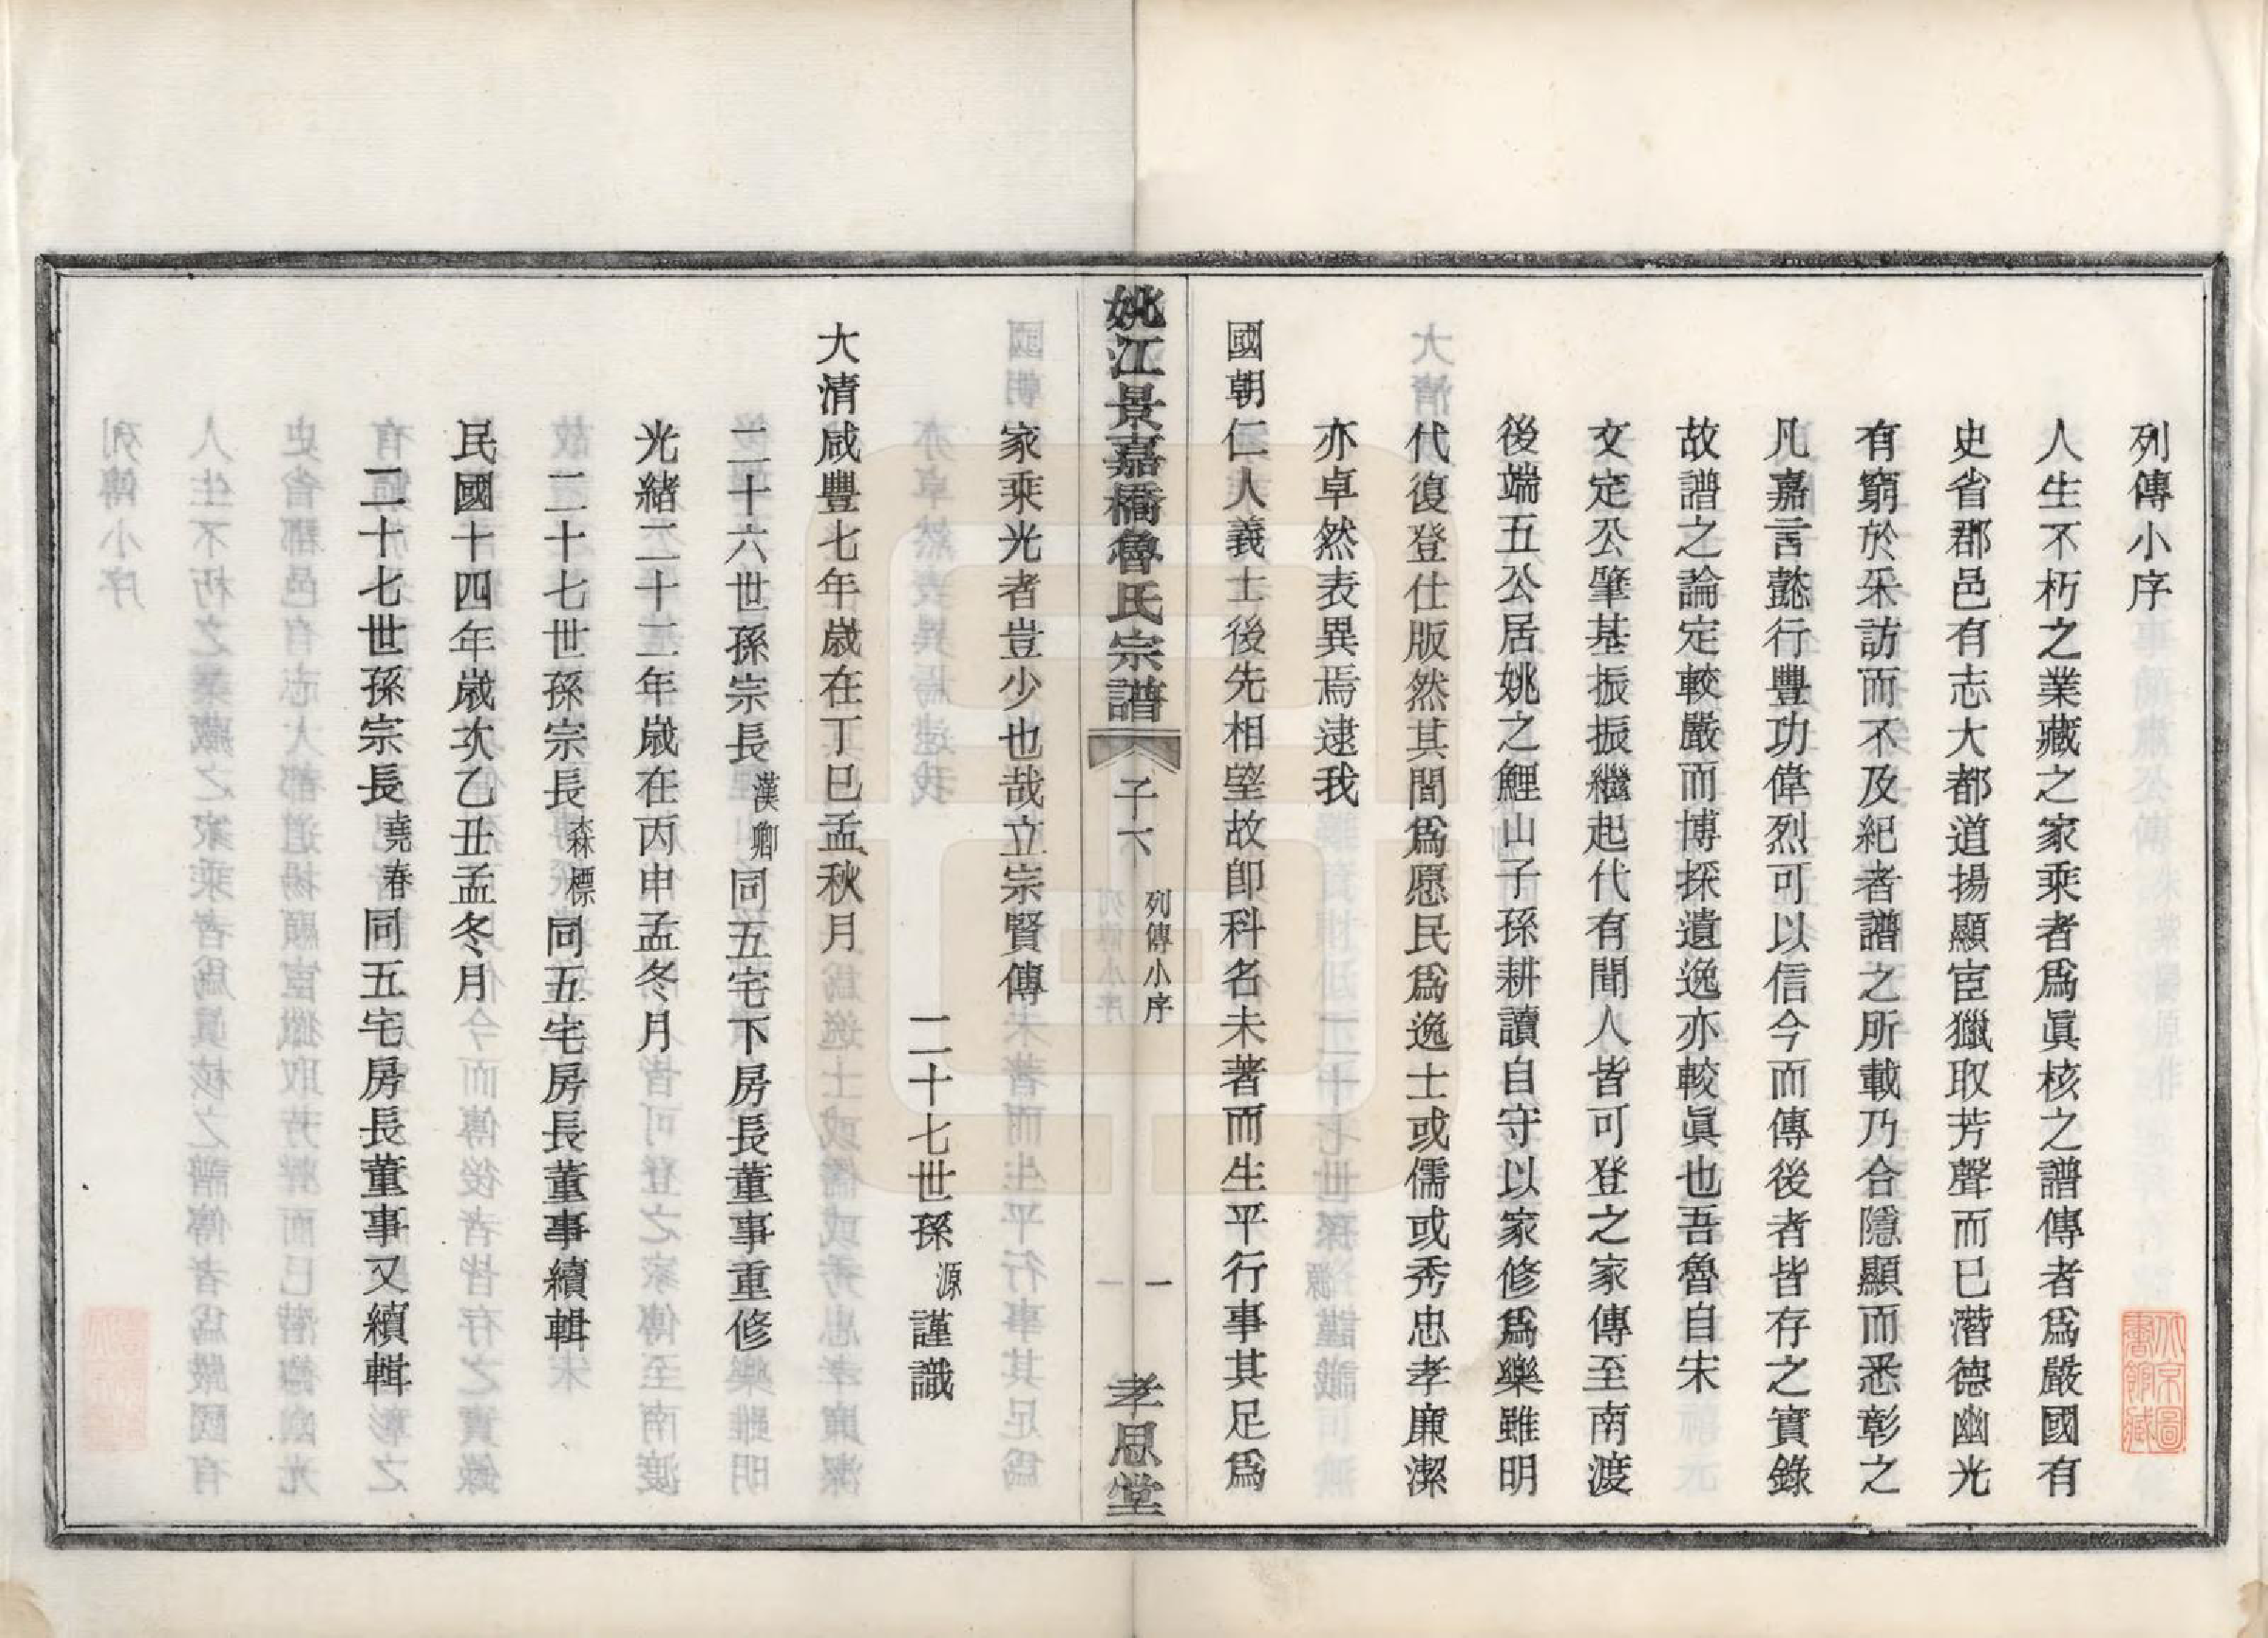 列傳小序
人生不朽之業藏之家乘者爲眞核之譜傳者爲嚴國有
史省郡邑有志大都道揚顯宦獵取芳聲而已潛德幽光
有窮於采訪而不及紀者譜之所載乃合隱顯而悉彰之
凡嘉言懿行豐功偉烈可以信今而傳後者皆存之實錄
故譜之論定較嚴而博採遺逸亦較眞也吾魯自宋
文定公肇基振振繼起代有聞人皆可登之家傳至南渡
後端五公居姚之鯉山子孫耕讀自守以家修爲樂雖明
代復登仕版然其間爲愿民爲逸士或儒或秀忠孝廉潔
亦卓然表異焉逮我
國朝仁人義士後先相望故卽科名未著而生平行事其足爲
姚江景嘉橋魯氏宗譜
子下
列傳小序
一
孝思堂
家乘光者豈少也哉立宗賢傳
二十七世孫源謹識
大清咸豐七年歲在丁巳孟秋月
二十六世孫宗長漢卿同五宅下房長董事重修
光緒二十二年歲在丙申孟冬月
二十七世孫宗長森標同五宅房長董事續輯
民國十四年歲次乙丑孟冬月
二十七世孫宗長堯春同五宅房長董事又續輯
北京圖
書館藏